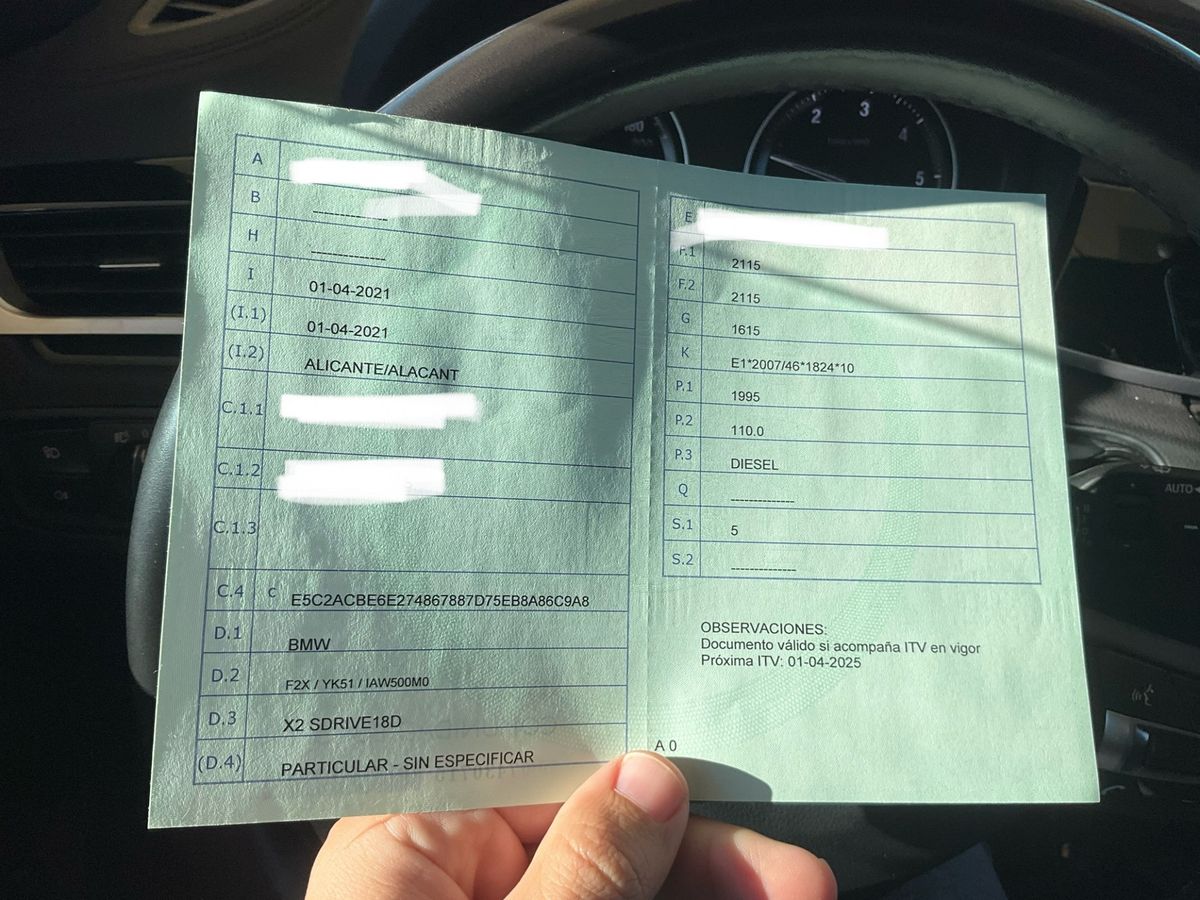 A
B
--------------
H
--------------
I 01-04-2021
(I.1) 01-04-2021
(I.2) ALICANTE/ALACANT
C.1.1
C.1.2
C.1.3
C.4 c E5C2ACBE6E274867887D75EB8A86C9A8
D.1 BMW
D.2 F2X / YK51 / IAW500M0
D.3 X2 SDRIVE18D
(D.4) PARTICULAR - SIN ESPECIFICAR
E
F.1 2115
F.2 2115
G 1615
K E1*2007/46*1824*10
P.1 1995
P.2 110.0
P.3 DIESEL
Q --------------
S.1 5
S.2 --------------
OBSERVACIONES:
Documento válido si acompaña ITV en vigor
Próxima ITV: 01-04-2025
A 0
2
3
4
5
AUTO